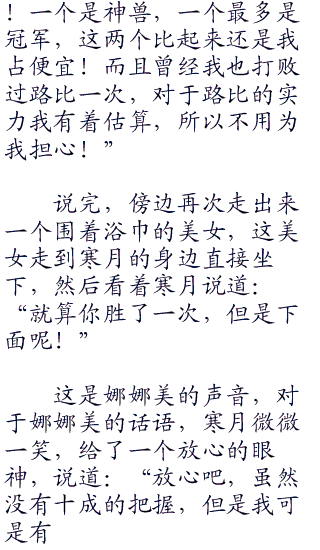 ！一个是神兽，一个最多是
冠军，这两个比起来还是我
占便宜！而且曾经我也打败
过路比一次，对于路比的实
力我有着估算，所以不用为
我担心！”
说完，傍边再次走出来
一个围着浴巾的美女，这美
女走到寒月的身边直接坐
下，然后看着寒月说道：
“就算你胜了一次，但是下
面呢！”
这是娜娜美的声音，对
于娜娜美的话语，寒月微微
一笑，给了一个放心的眼
神，说道：“放心吧，虽然
没有十成的把握，但是我可
是有